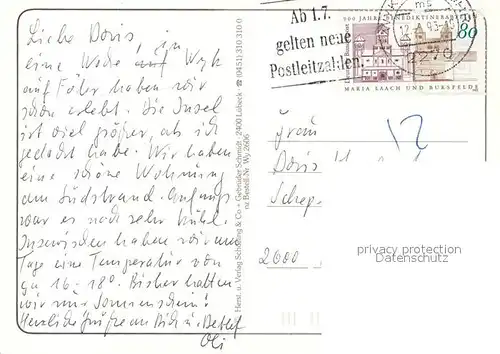 Liebe Doris,
eine Woche auf Wyk
auf Föhr haben wir
schon erlebt. Die Insel
ist viel größer, als ich
gedacht habe. Wir haben
eine schöne Wohnung
am Südstrand. Anfangs
war es noch sehr kühl.
Inzwischen haben wir am
Tage eine Temperatur von
ca 16-18°. Bisher hatten
wir nur Sonnenschein!
Herzliche Grüße an Dich u. Detlef
Herst. u. Verlag Schöning & Co + Gebrüder Schmidt · 2400 Lübeck · ☎ (0451) 310 310 0
nz Bestell-Nr. Wy 2606
Ab 1.7.
gelten neue
Postleitzahlen.
2270
900 JAHRE BENEDIKTINERABTEI
80
MARIA LAACH UND BURSFELDE
12
Frau
Doris
2000
privacy protection
Datenschutz